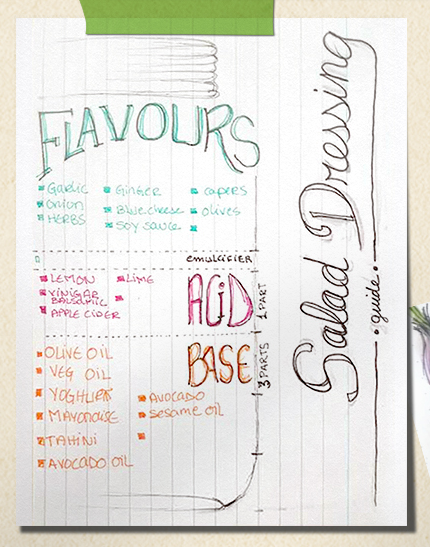 Salad Dressing
guide
FLAVOURS
GARLIC
ONION
HERBS
GINGER
BLUE CHEESE
SOY SAUCE
CAPERS
OLIVES
EMULCIFIER
ACID
1 PART
LEMON
VINIGAR
BALSAMIC
APPLE CIDER
LIME
BASE
3 PARTS
OLIVE OIL
VEG OIL
YOGHURT
MAYONOISE
TAHINI
AVOCADO OIL
AVOCADO
SESAME OIL